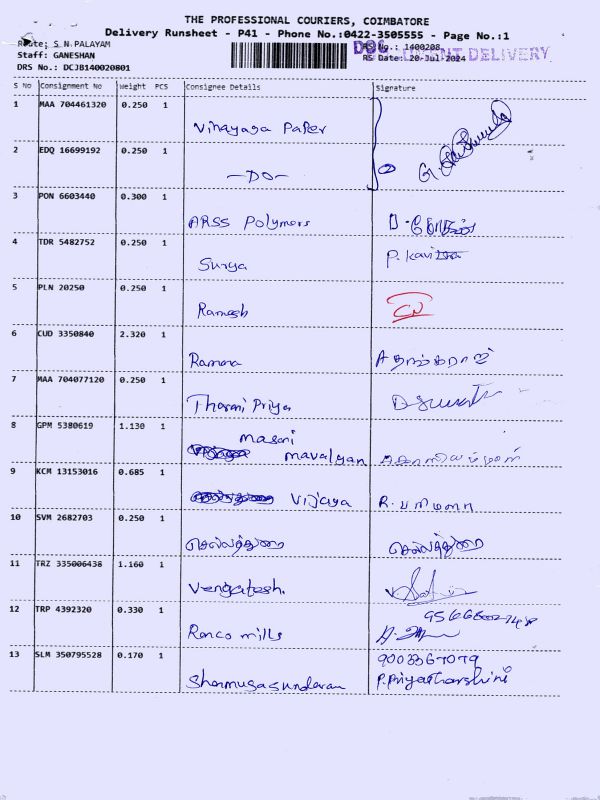 THE PROFESSIONAL COURIERS, COIMBATORE
Delivery Runsheet - P41 - Phone No.:0422-3505555 - Page No.:1
Route: S N PALAYAM
RS No.: 1400208
URGENT DELIVERY
Staff: GANESHAN
RS Date: 20-Jul-2024
DRS No.: DCJB140020801
S No Consignment No Weight PCS Consignee Details Signature
1 MAA 704461320 0.250 1
Vinayaga Paper
2 EDQ 16699192 0.250 1
-DO-
3 PON 6603440 0.300 1
ARSS Polymers
4 TDR 5482752 0.250 1
Surya P. Kavitha
5 PLN 20250 0.250 1
Ramesh
6 CUD 3350840 2.320 1
Ramana A தங்கராஜ்
7 MAA 704077120 0.250 1
Tharani Priya
8 GPM 5380619 1.130 1
masani
mavalyan
9 KCM 13153016 0.685 1
Vijaya R. பரிமளா
10 SVM 2682703 0.250 1
செல்லத்துரை செல்லத்துரை
11 TRZ 335006438 1.160 1
Vengatesh.
12 TRP 4392320 0.330 1
Ronco mills
13 SLM 350795528 0.170 1
9003367079
Shanmugasundaran P.Priyatharshini